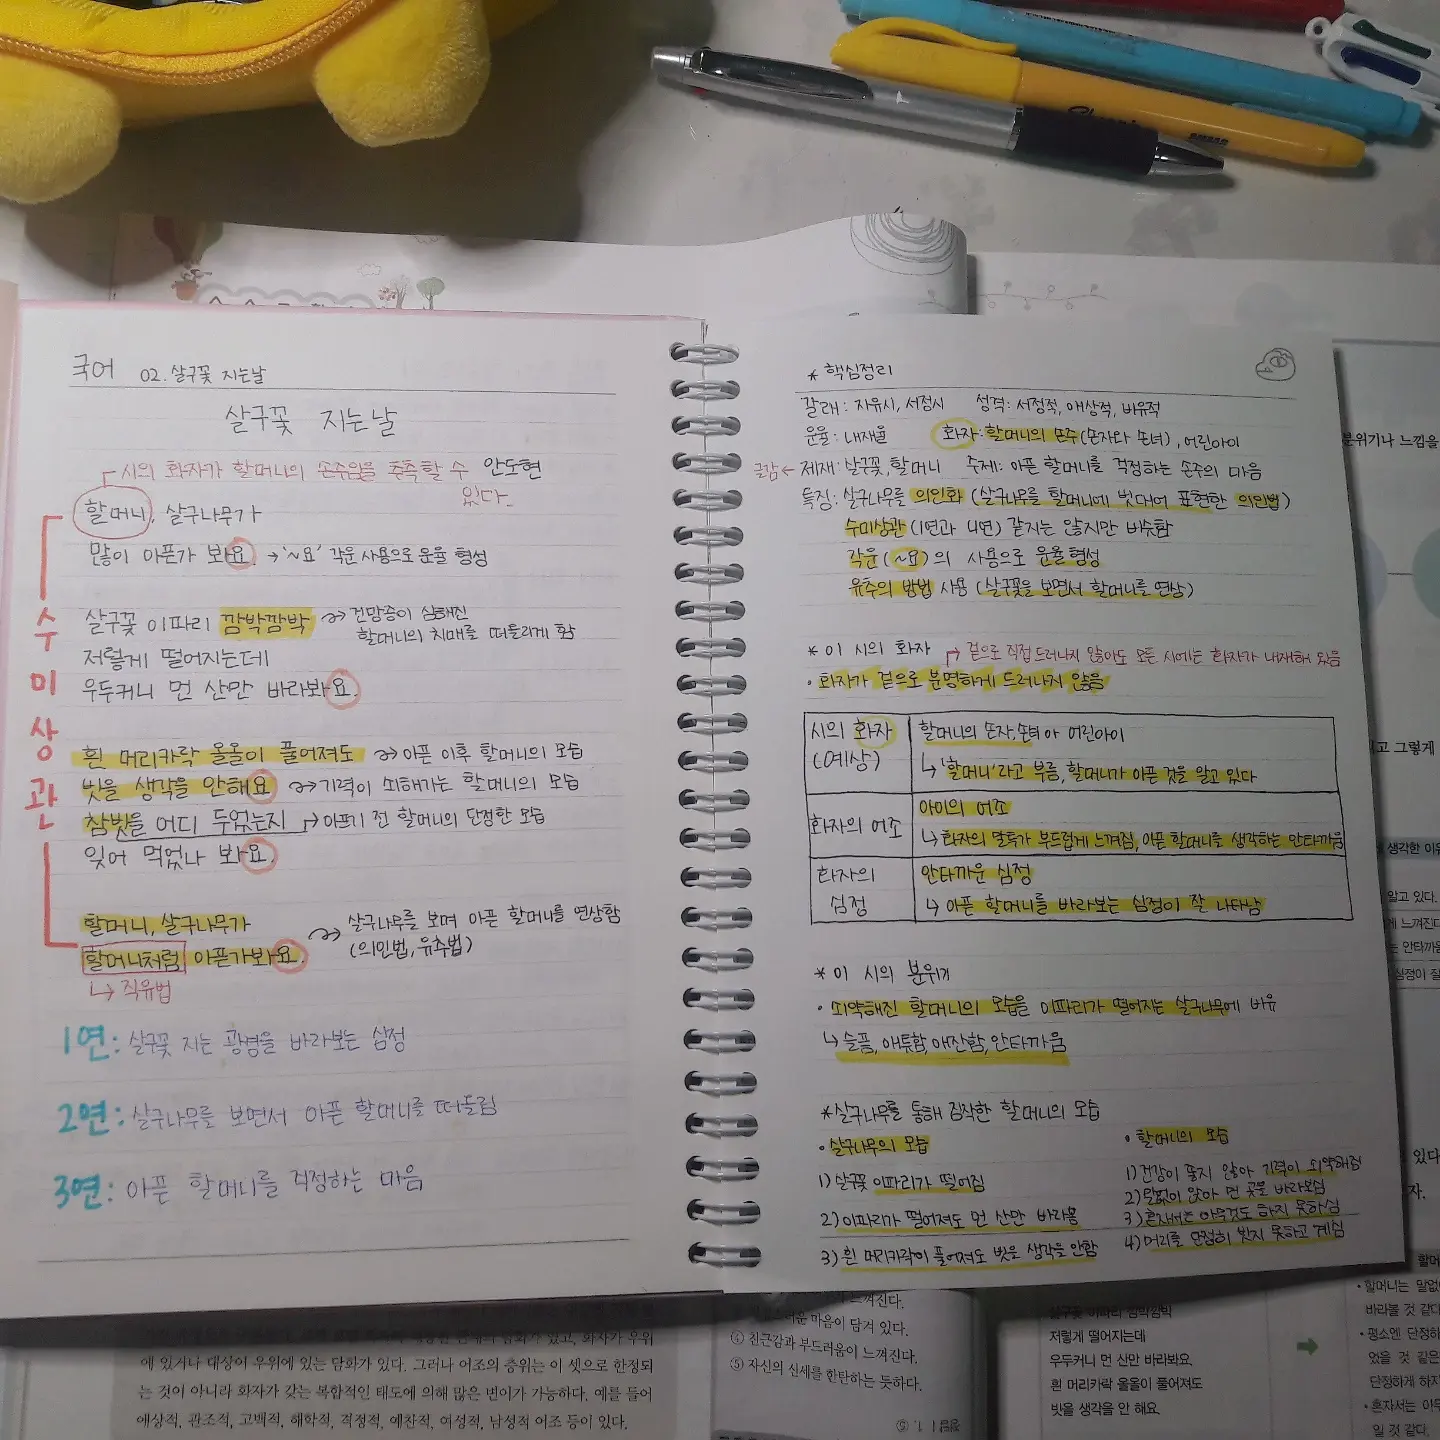 국어 02. 살구꽃 지는날
살구꽃 지는날
시의 화자가 할머니의 손주임을 추측할 수 있다.
안도현
할머니, 살구나무가
많이 아픈가 봐요. → '~요' 각운 사용으로 운율 형성
살구꽃 이파리 깜박깜박 → 건망증이 심해진
할머니의 치매를 떠올리게 함
저렇게 떨어지는데
우두커니 먼 산만 바라봐요.
흰 머리카락 올올이 풀어져도 → 아픈 이후 할머니의 모습
빗을 생각을 안해요 → 기력이 쇠해가는 할머니의 모습
참빗을 어디 두었는지 → 아프기 전 할머니의 단정한 모습
잊어 먹었나 봐요.
할머니, 살구나무가 → 살구나무를 보며 아픈 할머니를 연상함
할머니처럼 아픈가봐요. (의인법, 유추법)
↳ 직유법
수미상관
1연: 살구꽃 지는 광경을 바라보는 심정
2연: 살구나무를 보면서 아픈 할머니를 떠올림
3연: 아픈 할머니를 걱정하는 마음
* 핵심정리
갈래: 자유시, 서정시 성격: 서정적, 애상적, 비유적
운율: 내재율 화자: 할머니의 손주(손자와 손녀), 어린아이
글감 ← 제재: 살구꽃, 할머니 주제: 아픈 할머니를 걱정하는 손주의 마음
특징: 살구나무를 의인화 (살구나무를 할머니에 빗대어 표현한 의인법)
수미상관 (1연과 4연) 같지는 않지만 비슷함
각운(~요)의 사용으로 운율 형성
유추의 방법 사용 (살구꽃을 보면서 할머니를 연상)
* 이 시의 화자 → 겉으로 직접 드러나지 않아도 모든 시에는 화자가 내재해 있음
• 화자가 겉으로 분명하게 드러나지 않음
시의 화자 (예상)
할머니의 손자, 손녀 아 어린아이
↳ '할머니'라고 부름, 할머니가 아픈 것을 알고 있다
화자의 어조
아이의 어조
↳ 화자의 말투가 부드럽게 느껴짐, 아픈 할머니를 생각하는 안타까움
화자의 심정
안타까운 심정
↳ 아픈 할머니를 바라보는 심정이 잘 나타남
* 이 시의 분위기
• 쇠약해진 할머니의 모습을 이파리가 떨어지는 살구나무에 비유
↳ 슬픔, 애틋함, 애잔함, 안타까움
* 살구나무를 통해 짐작한 할머니의 모습
• 살구나무의 모습
1) 살구꽃 이파리가 떨어짐
2) 이파리가 떨어져도 먼 산만 바라봄
3) 흰 머리카락이 풀어져도 빗을 생각을 안함
• 할머니의 모습
1) 건강이 좋지 않아 기력이 쇠약해짐
2) 말없이 앉아 먼 곳을 바라보심
3) 혼자서는 아무것도 하지 못하심
4) 머리를 단정히 빗지 못하고 계심
분위기나 느낌을
고 그렇게
생각한 이유
알고 있다.
게 느껴진다
는 안타까움
심정이 잘
있다
자.
에 있거나 대상이 우위에 있는 담화가 있다. 그러나 어조의 층위는 이 셋으로 한정되
는 것이 아니라 화자가 갖는 복합적인 태도에 의해 많은 변이가 가능하다. 예를 들어
애상적, 관조적, 고백적, 해학적, 격정적, 예찬적, 여성적, 남성적 어조 등이 있다.
느껴진다.
마음이 담겨 있다.
④ 친근감과 부드러움이 느껴진다.
⑤ 자신의 신세를 한탄하는 듯하다.
살구꽃 이파리 깜박깜박
저렇게 떨어지는데
우두커니 먼 산만 바라봐요.
흰 머리카락 올올이 풀어져도
빗을 생각을 안 해요.
할머
• 할머니는 말없
바라볼 것 같다
• 평소엔 단정하
았을 것 같은
단정하게 하지
• 혼자서는 아무
일 것 같다.